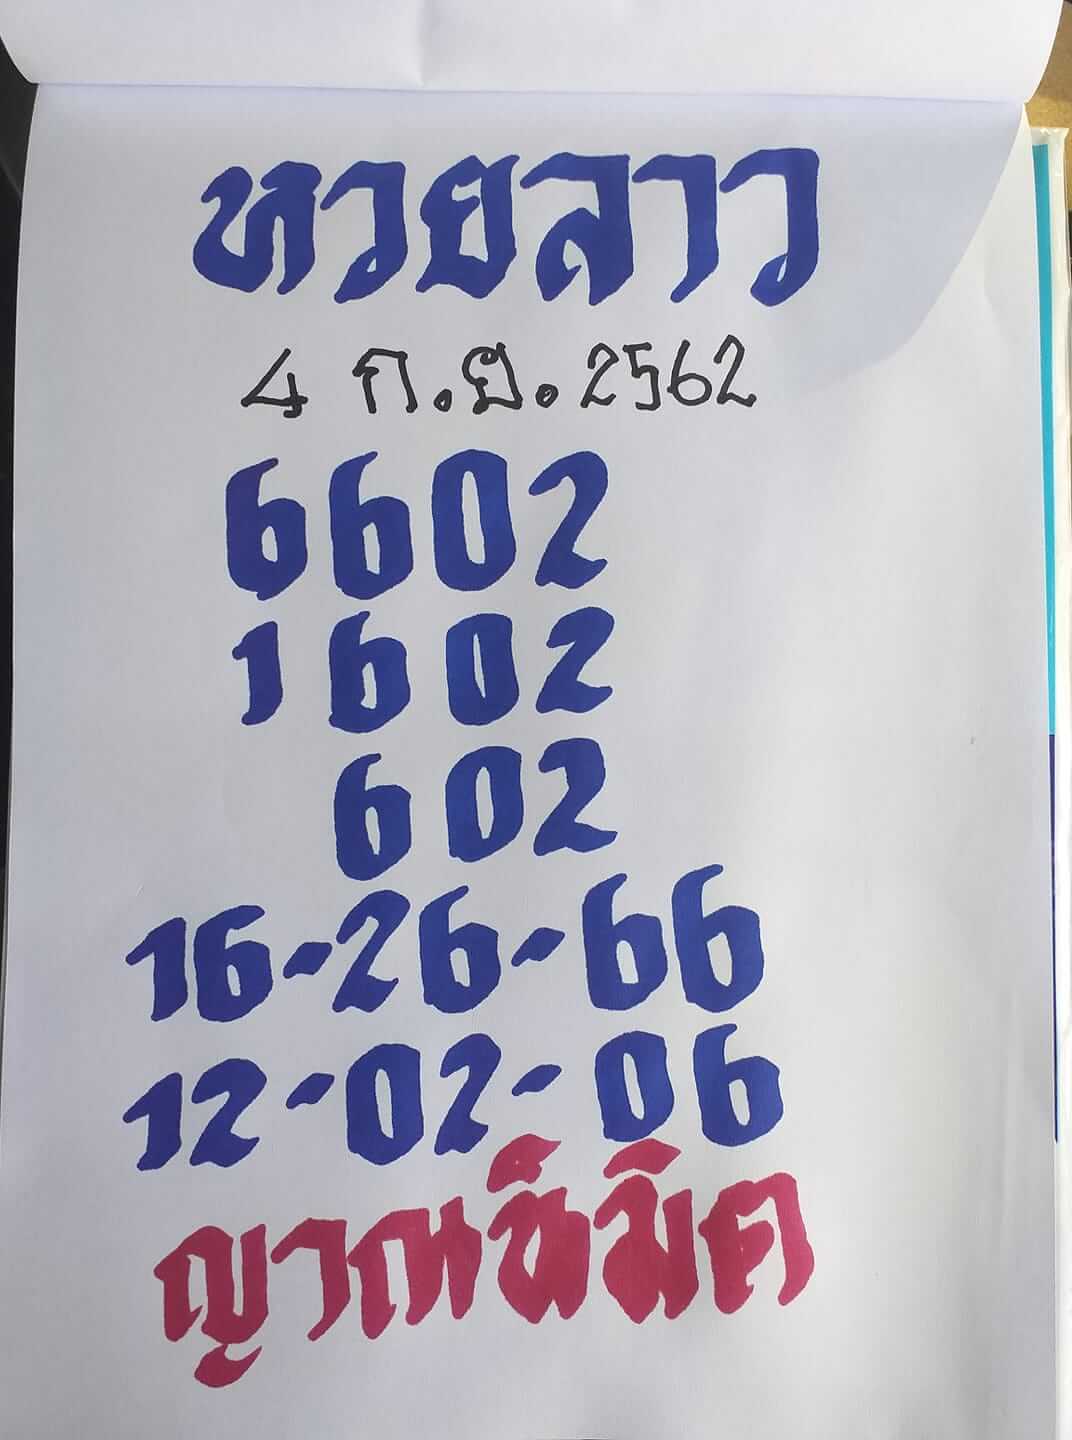 หวยลาว
4 ก.ย. 2562
6602
1602
602
16-26-66
12-02-06
ญาณนิมิต